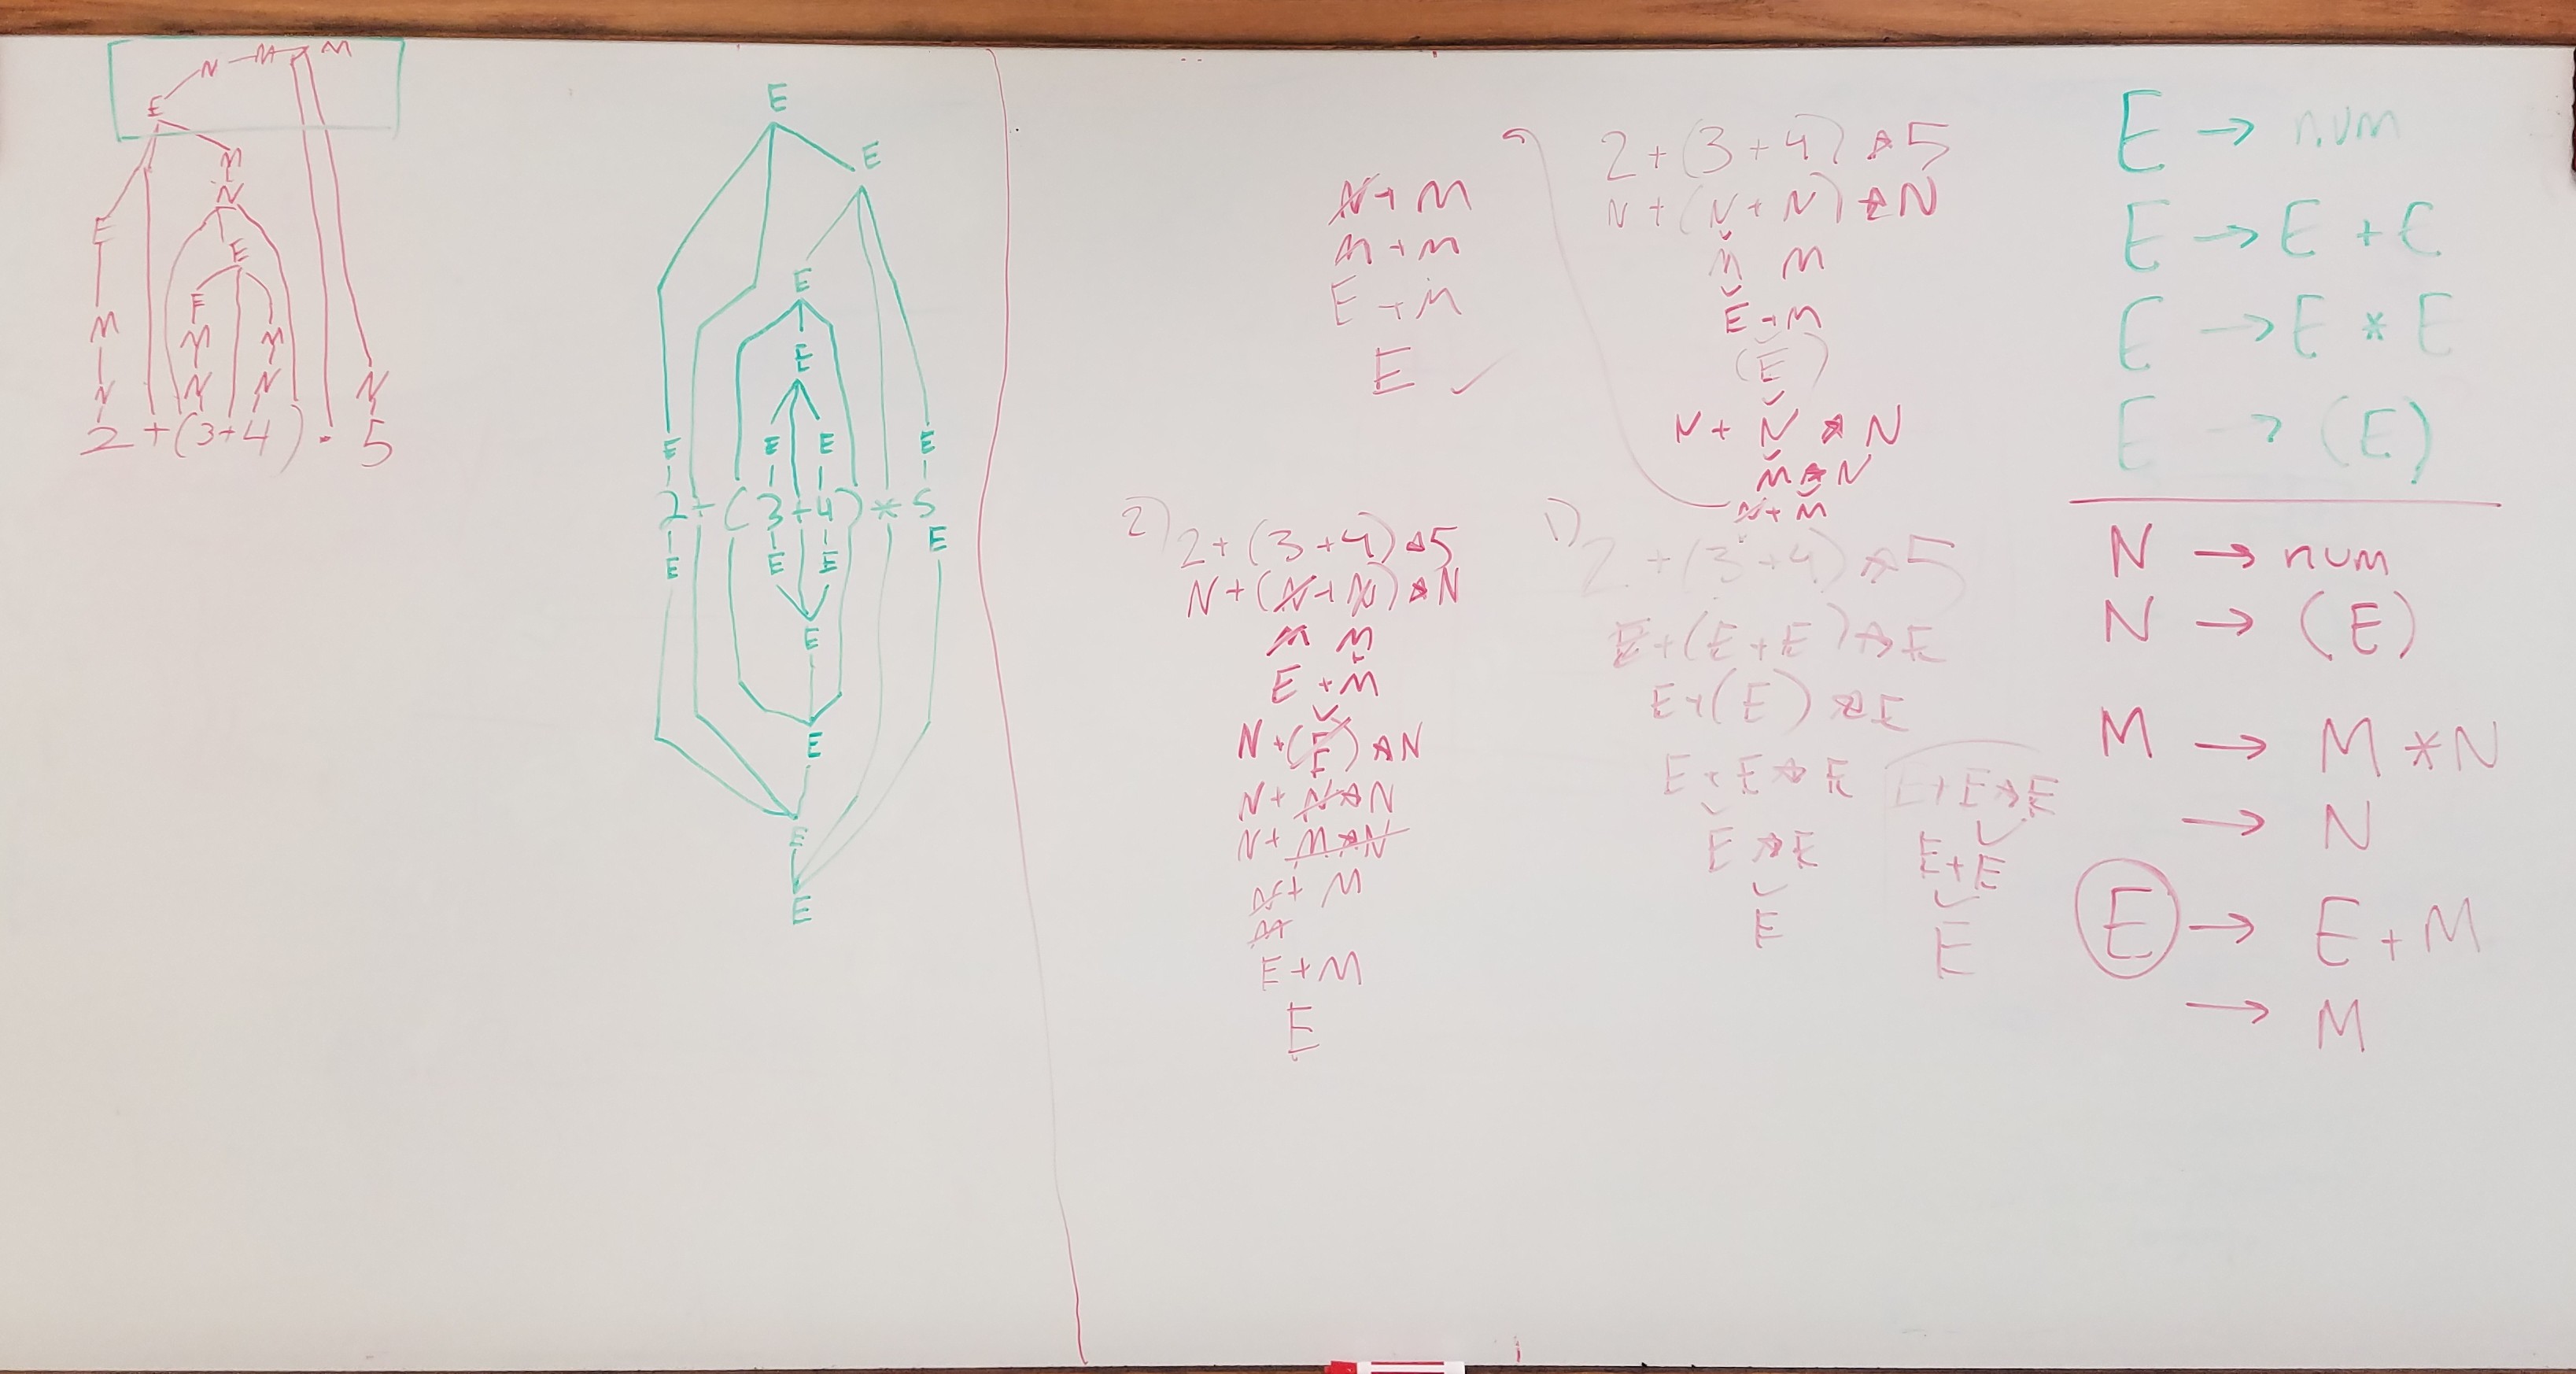 M
N M
E
M
N
E
E
E
M M M
N N N N
2 + (3+4) * 5
E
E
E
E
E E E E
2 + (3+4) * 5
E E E E
E
E
E
E
N + M
M + M
E + M
E ✓
2 + (3+4) * 5
N + (N+N) * N
M M
E + M
(E)
N + N * N
M * N
N + M
2) 2 + (3+4) * 5
N + (N+N) * N
M M
E + M
N + (E) * N
E
N + N * N
N + M * N
N + M
M
E + M
E
1) 2 + (3+4) * 5
E + (E+E) * E
E + (E) * E
E + E * E
E * E
E
E + E * E
E + E
E
E → num
E → E + E
E → E * E
E → (E)
N → num
N → (E)
M → M * N
→ N
E → E + M
→ M